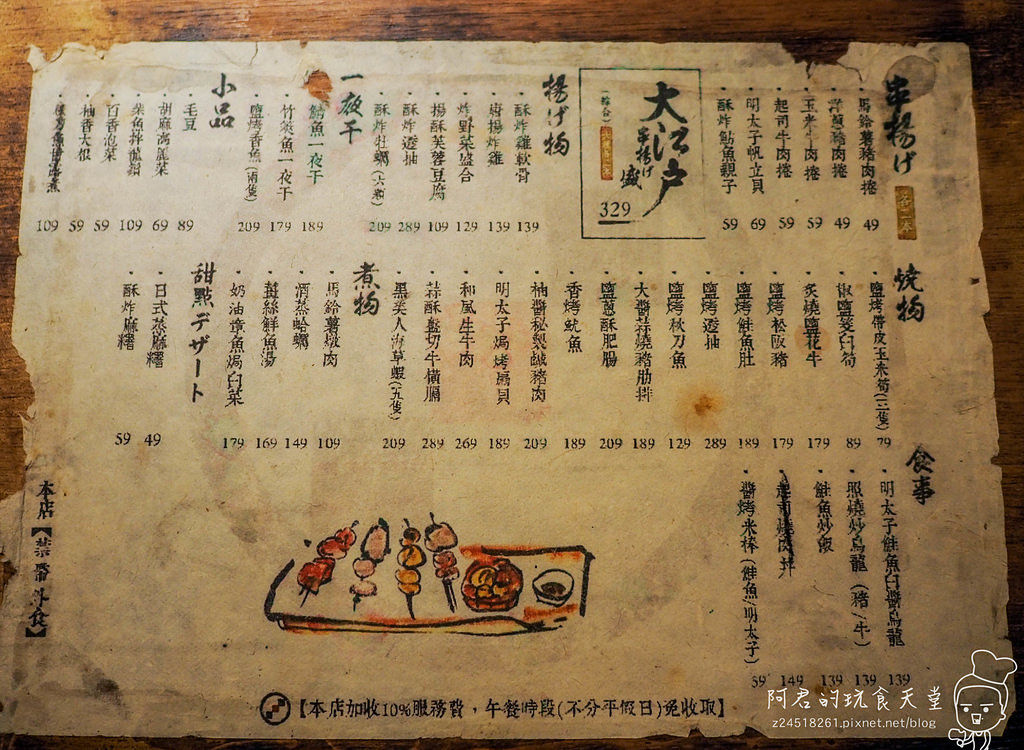 串揚げ
名一本
馬鈴薯豬肉捲 49
洋蔥豬肉捲 49
玉米牛肉捲 59
起司牛肉捲 59
明太子帆立貝 69
酥炸鮎魚親子 59
大江戶
串揚げ
盛
329
揚げ物
酥炸雞軟骨 139
唐揚炸雞 139
炸野菜盛合 129
揚酥芙蓉豆腐 109
酥炸透抽 289
酥炸牡蠣(六顆) 209
一夜干
鯖魚一夜干 189
竹筴魚一夜干 179
鹽烤香魚(兩隻) 209
小品
毛豆 89
胡麻高麗菜 69
柴魚拌龍鬚 109
百香泡菜 59
柚香大根 59
109
燒物
鹽烤帶皮玉米筍(三隻) 79
椒鹽筊白筍 89
炙燒鹽花牛 179
鹽烤松阪豬 179
鹽烤鮭魚肚 189
鹽烤透抽 289
鹽烤秋刀魚 129
大醬蒜燒豬肋排 189
鹽蔥酥肥腸 209
香烤魷魚 189
柚醬秘製鹹豬肉 209
明太子焗烤扇貝 189
和風生牛肉 269
蒜酥骰切牛橫膈 289
黑美人海草蝦(五隻) 209
煮物
馬鈴薯燉肉 109
酒蒸蛤蠣 149
薑絲鮮魚湯 169
奶油章魚焗白菜 179
甜點デザート
日式蒸麻糬 49
酥炸麻糬 59
食事
明太子鮭魚白醬烏龍 139
照燒炒烏龍(豬/牛) 139
鮭魚炒飯 139
起司燒肉丼 149
醬烤米棒(鮭魚/明太子) 59
本店【禁帶外食】
【本店加收10%服務費，午餐時段(不分平假日)免收取】
阿君的玩食天堂
z24518261.pixnet.net/blog